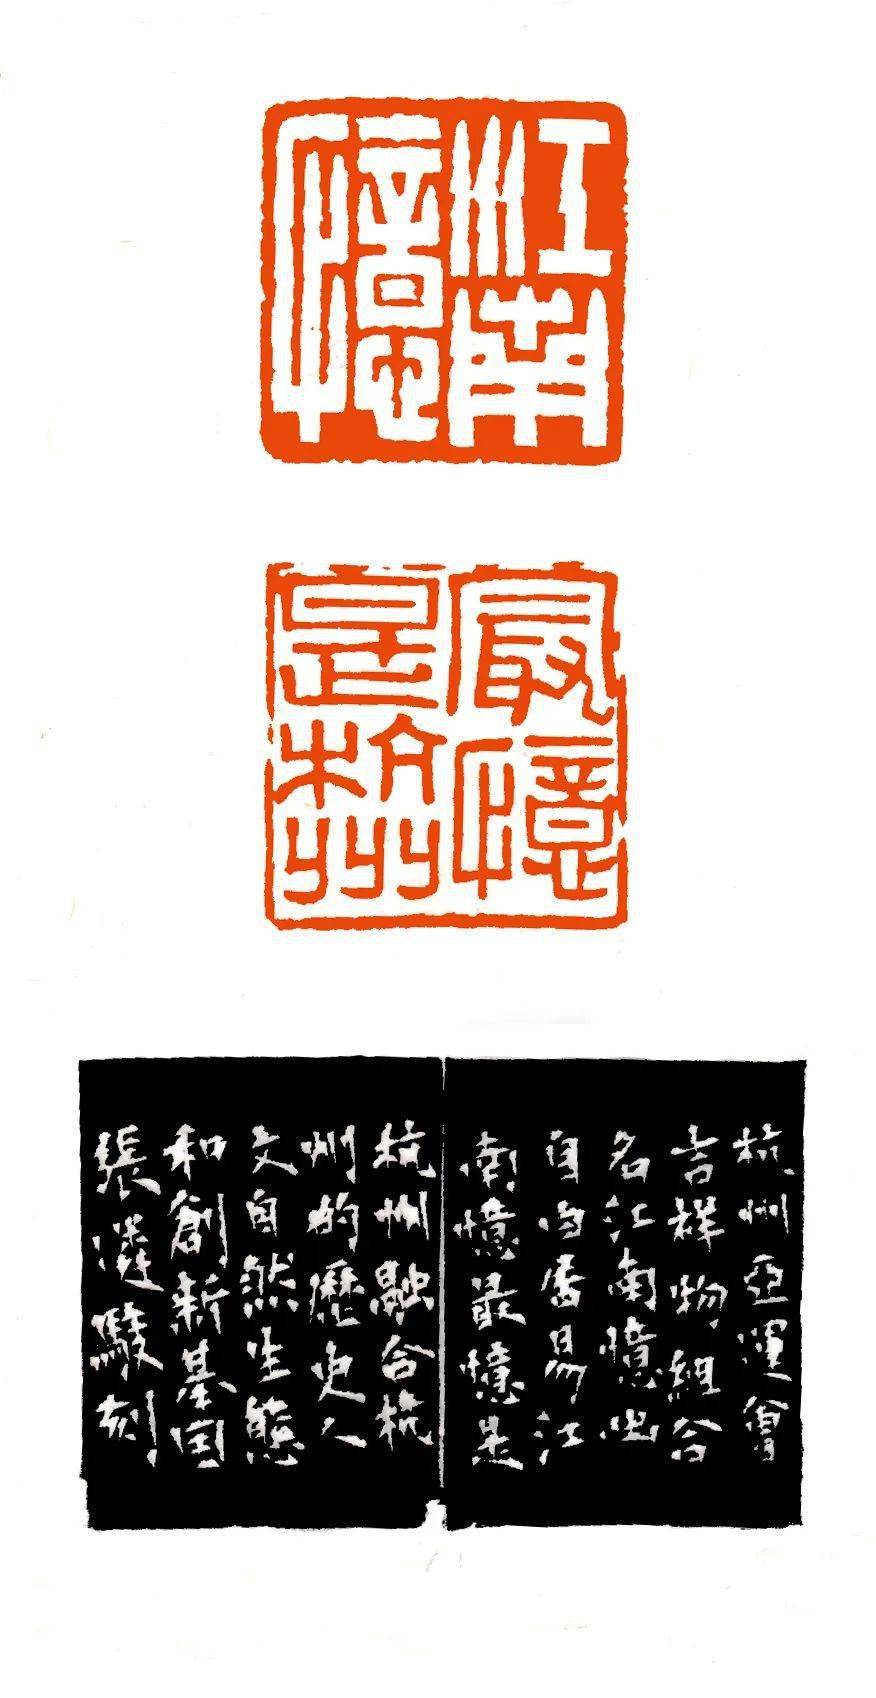 江南
憶
最憶
是杭州
杭州亞運會
吉祥物組合
名江南憶出
自白居易江
南憶最憶是
杭州融合杭
州的歷史人
文自然生態
和創新基因
張駿刻